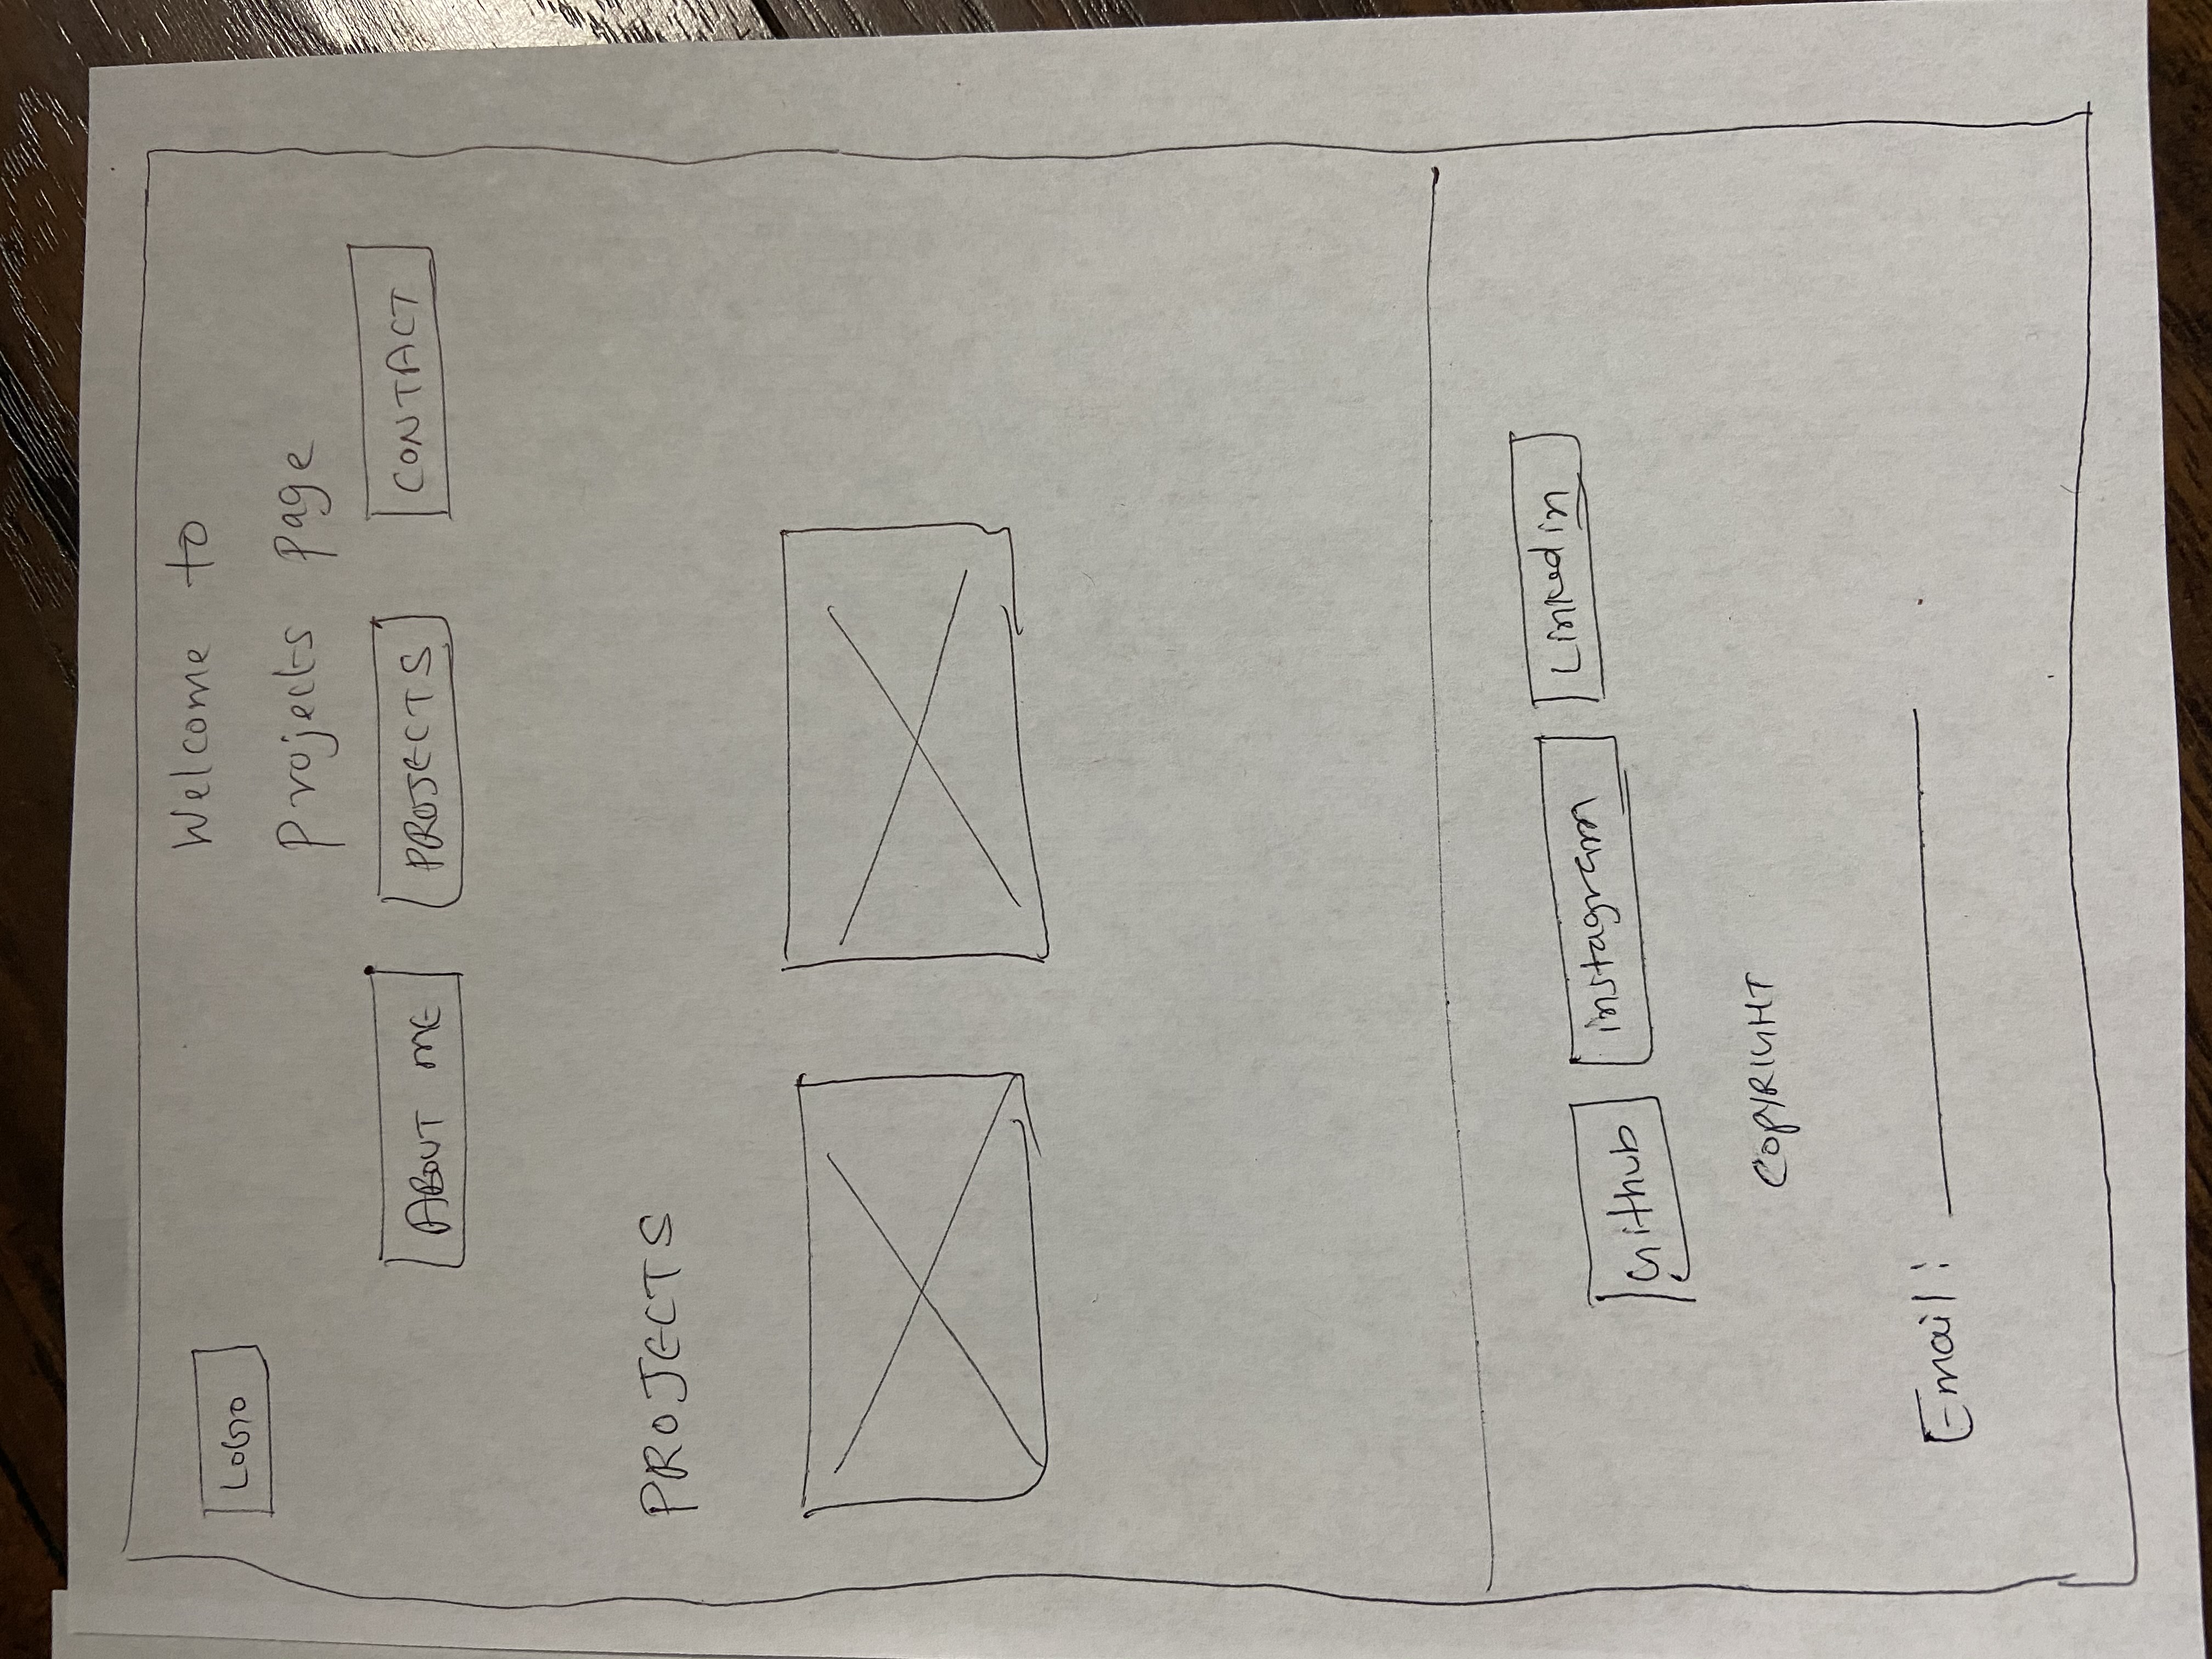 Welcome to
LOGO
Projects Page
ABOUT ME PROJECTS CONTACT
PROJECTS
Github instagram Linkedin
COPYRIGHT
Email: